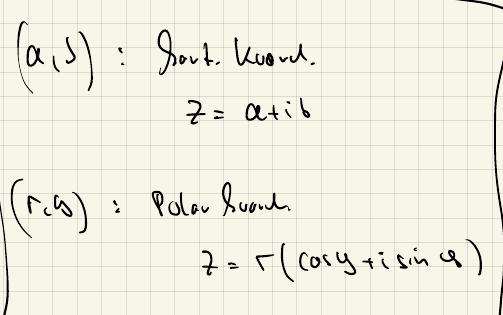 (a, b) : kart. Koord.
z = a + ib
(r, φ) : Polarkoord.
z = r(cos φ + i sin φ)